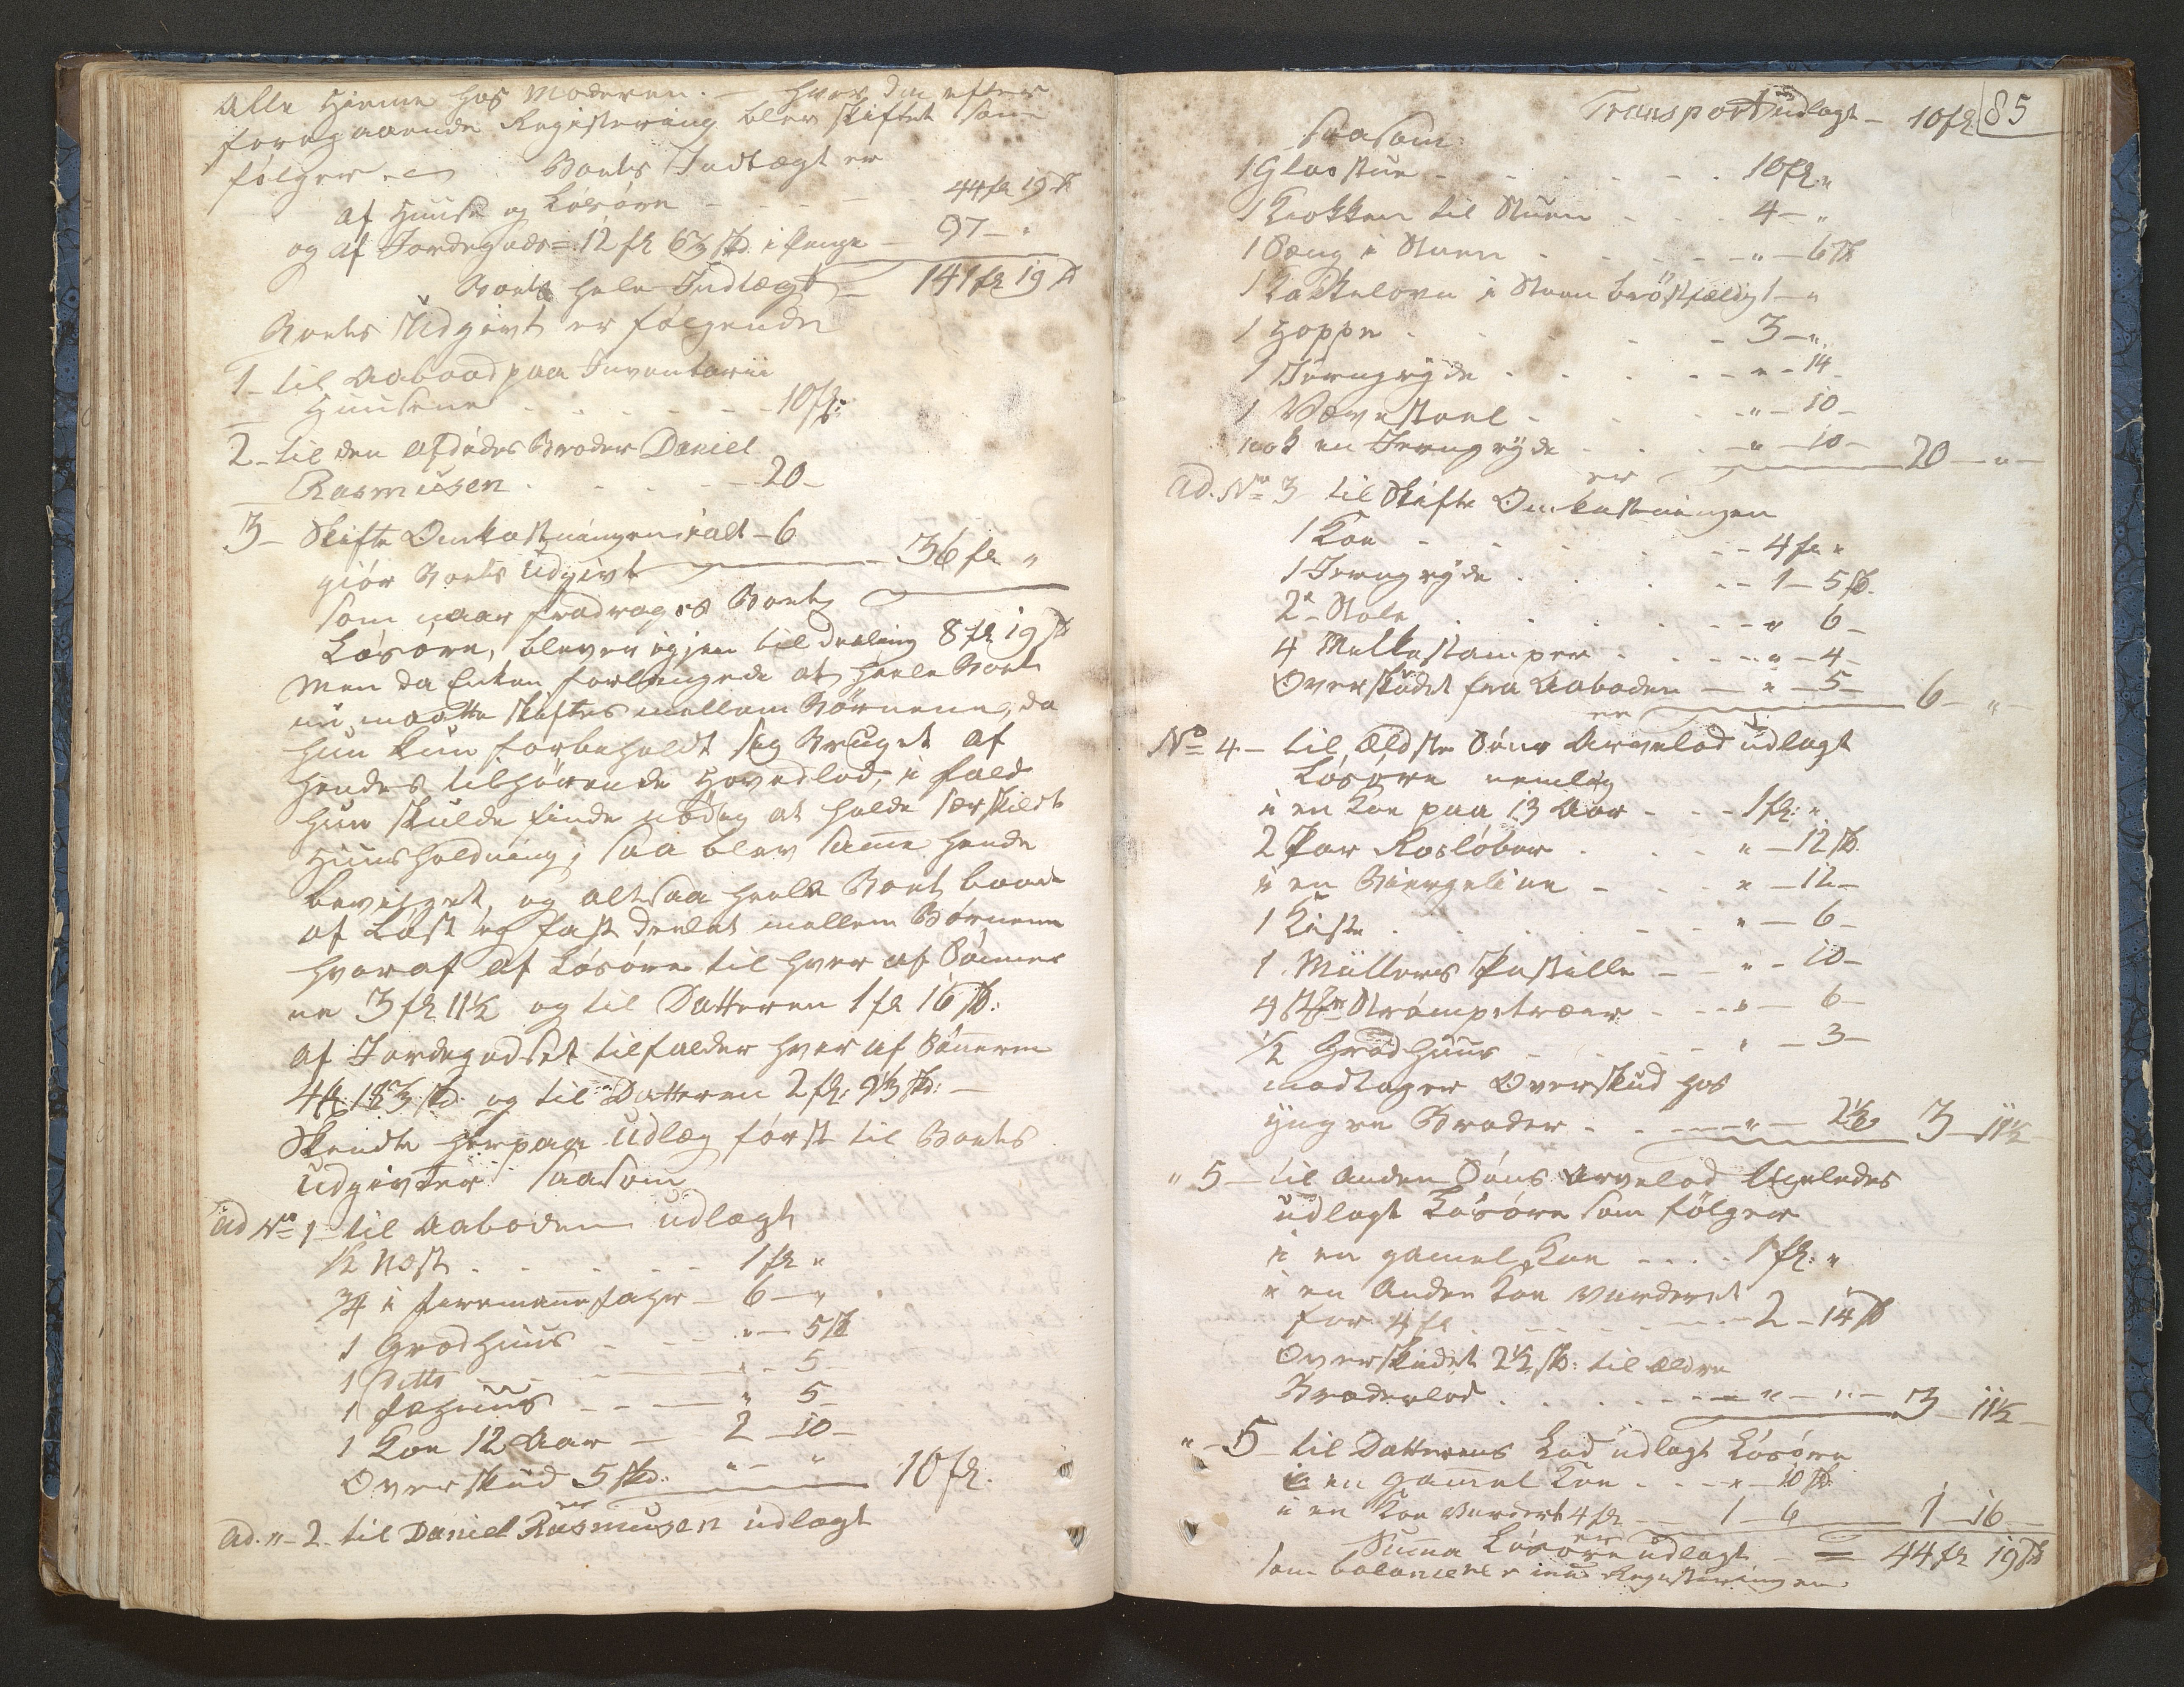 Alle Hieme hos Moderen. — hvor den efter
foregaaende Registering blev skiftet som
følger. Boets Indtægt er
af Huuse og Løsøre — 44 fl 19 sk
og af Jordegods = 12 fl 6⅔ skd. i Penge — 97 — "
Boets hele Indtægt — 141 fl 19 sk
Boets Udgivt er følgende
1 — til Aaboed paa Inventarii
Huusene — 10 fl:
2 — til den afdødes Broder Daniel
Rasmusen — 20 —
3 — Skifte Omkostningen i alt — 6
giør Boets Udgivt — 36 fl "
som naar fradrages Boets
Løsøre, bliver igjen til deeling 8 fl 19 sk
Men da Enken forlangede at heele Boet
nu maatte skiftes mellem Børnene, da
hun kun forbeholdt sig Bruget af
hendes tilhørende Hovedlod, i fald
hun skulde finde nødig at holde særskildt
Huusholdning; saa blev samme hende
bevilget, og altsaa heele Boet baade
af Løst og fast deelet mellem Børnene
hvoraf af Løsøre til hver af Sønner
ne 3 fl 11½ og til Datteren 1 fl 16 sk:
af Jordegodset tilfalder hver af Sønnerne
4 fl 18⅔ skd og til Datteren 2 fl: 9⅓ skd: —
Skeedte herpaa Udlæg først til Boets
Udgivter saasom
ad No 1 — til Aaboden udlagt
½ Nøst — 1 fl "
¾ i feremansfahr — 6 — "
1 Grødhuus — " — 5 sk
1 Ditto — " — 5 —
1 fæhuus — " 5 —
1 Koe 12 Aar — 2 — 10 —
Overskud 5 skd: " — " 10 fl.
ad. " — 2 — til Daniel Rasmusen er udlagt
85
Transport udlagt — 10 fl
saasom
1 Glasstue — 10 fl: "
1 Klokken til Stuen — 4 — "
1 Seng i Stuen — " — 6 sk
1 Kakkelovn i Stuen brøstfældig 1 — "
1 Hoppe — 3 — "
1 Jerngryde — " — 14
1 Væveststoel — " — 10 —
nok en Jerngryde — " — 10 — 20 — " —
ad. No 3 til Skifte Omkostningen er
1 Koe — 4 fl "
1 Jerngryde — 1 — 5 sk.
2 Stole — " 6 —
4 Melkestamper — " — 4 —
Overskudet fra Aaboden — " — 5 — 6 — " —
No 4 — til ældste Søns Arvelod er udlagt
Løsøre nemlig
i en Koe paa 13 Aar — 1 fl: "
2 Par Rosløber — " — 12 sk.
i en Biergeline — " — 12 —
1 Kiste — " — 6 —
1 Müllers Postille — " — 10 —
4 Strømpetræer — " — 6 —
½ Grødhuus — " — 3 —
modtager Overskud hos
yngre Broder — " — 2½ 3 — 11½ —
" 5 — til Anden Søns Arvelod ligeledes
udlagt Løsøre som følger
i en gamel Koe — 1 fl: "
i en Anden Koe vurderet
for 4 fl — 2 — 14 sk
Overskudet 2½ sk: til ældre
Broderlod — " — " — 3 — 11½ —
" — 5 — til Datterens Lod udlagt Løsøre
i en gammel Koe — " — 10 sk
i en Koe vurdert 4 fl — 1 — 6 — 1 — 16 —
Summa Løsøre er udlagt — = 44 fl 19 sk
som balancerer med Registeringen.